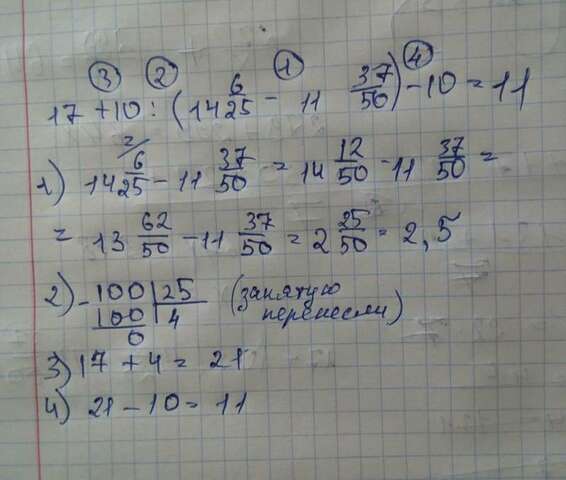 ③ ② ① ④
17 + 10 : (14 6/25 - 11 37/50) - 10 = 11
1) 14 6/25 - 11 37/50 = 14 12/50 - 11 37/50 =
= 13 62/50 - 11 37/50 = 2 25/50 = 2,5
2) - 100 | 25 (запятую
100 | 4 перенесли)
0
3) 17 + 4 = 21
4) 21 - 10 = 11